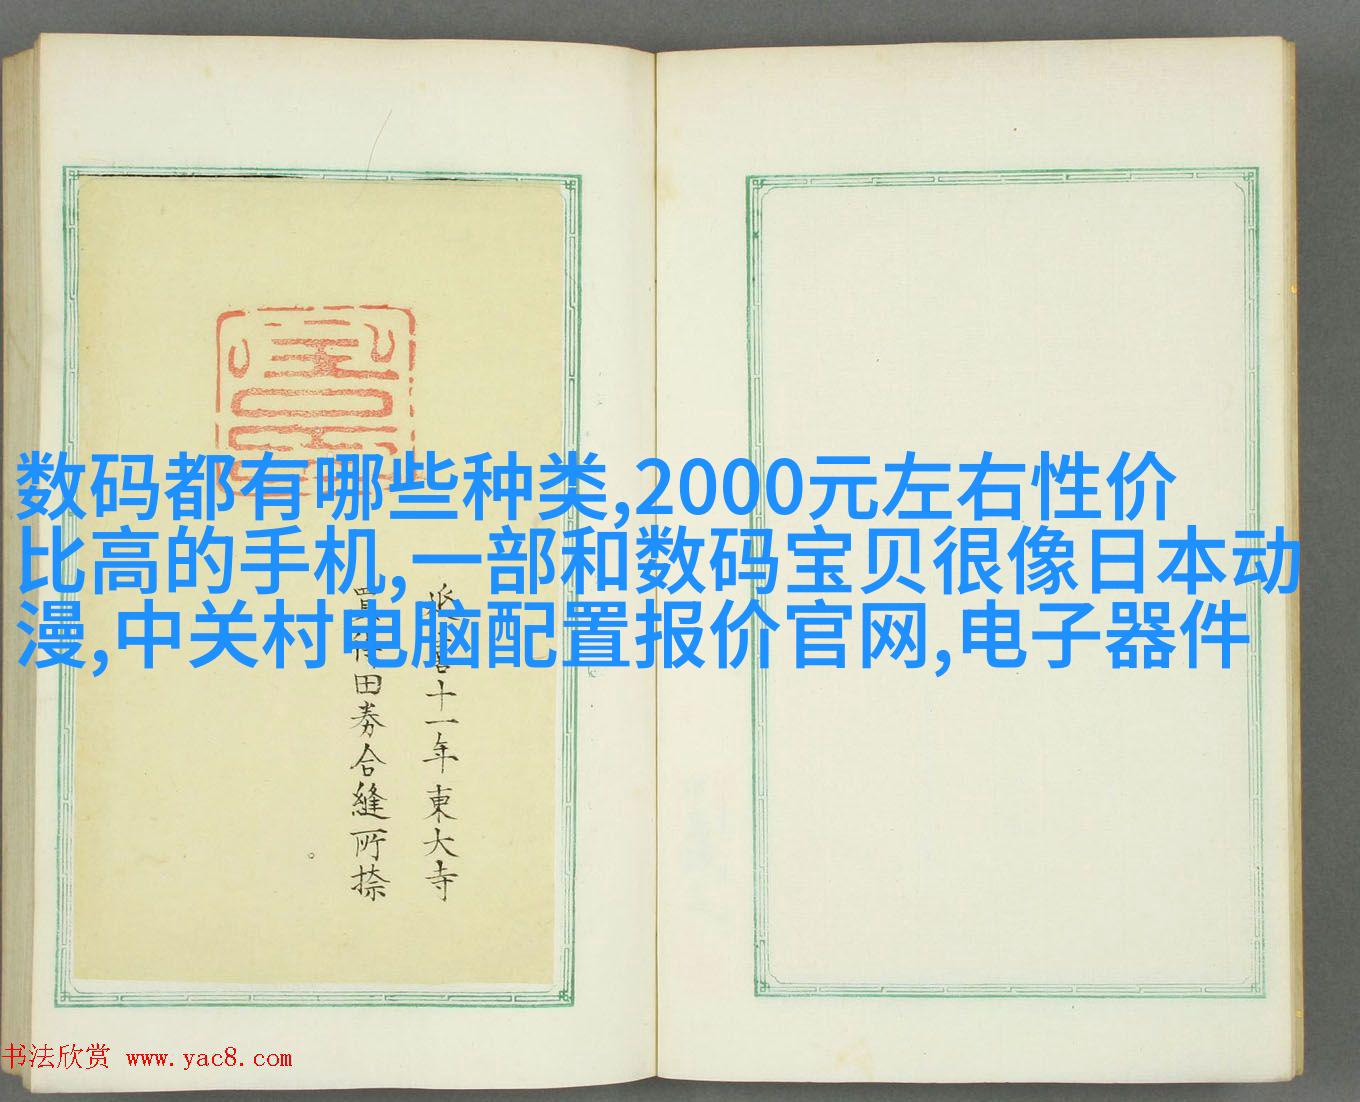 数码都有哪些种类,2000元左右性价
比高的手机,一部和数码宝贝很像日本动
漫,中关村电脑配置报价官网,电子器件
十一年東大寺
田券合縫所捺
书法欣赏 www.yac8.com